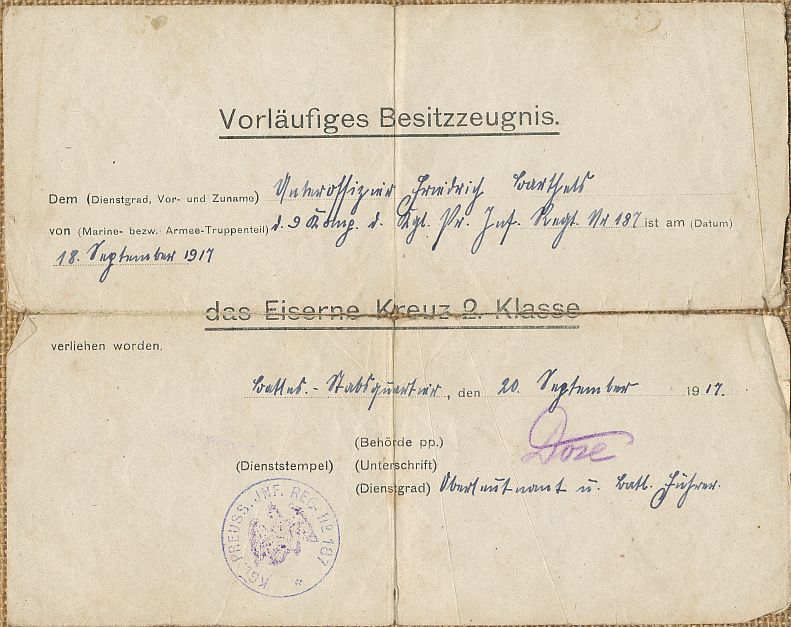 Vorläufiges Besitzzeugnis.
Dem (Dienstgrad, Vor- und Zuname) Unteroffizier Friedrich Barthels
von (Marine- bezw. Armee-Truppenteil) d. 9 Komp. d. Kgl. Pr. Inf. Regt. Nr 187 ist am (Datum)
18. September 1917
das Eiserne Kreuz 2. Klasse
verliehen worden.
Batls.-Stabsquartier, den 20. September 1917.
(Behörde pp.)
Dose
(Dienststempel) (Unterschrift)
(Dienstgrad) Oberleutnant u. Batl. Führer.
KGL. PREUSS. JNF. REG. No 187